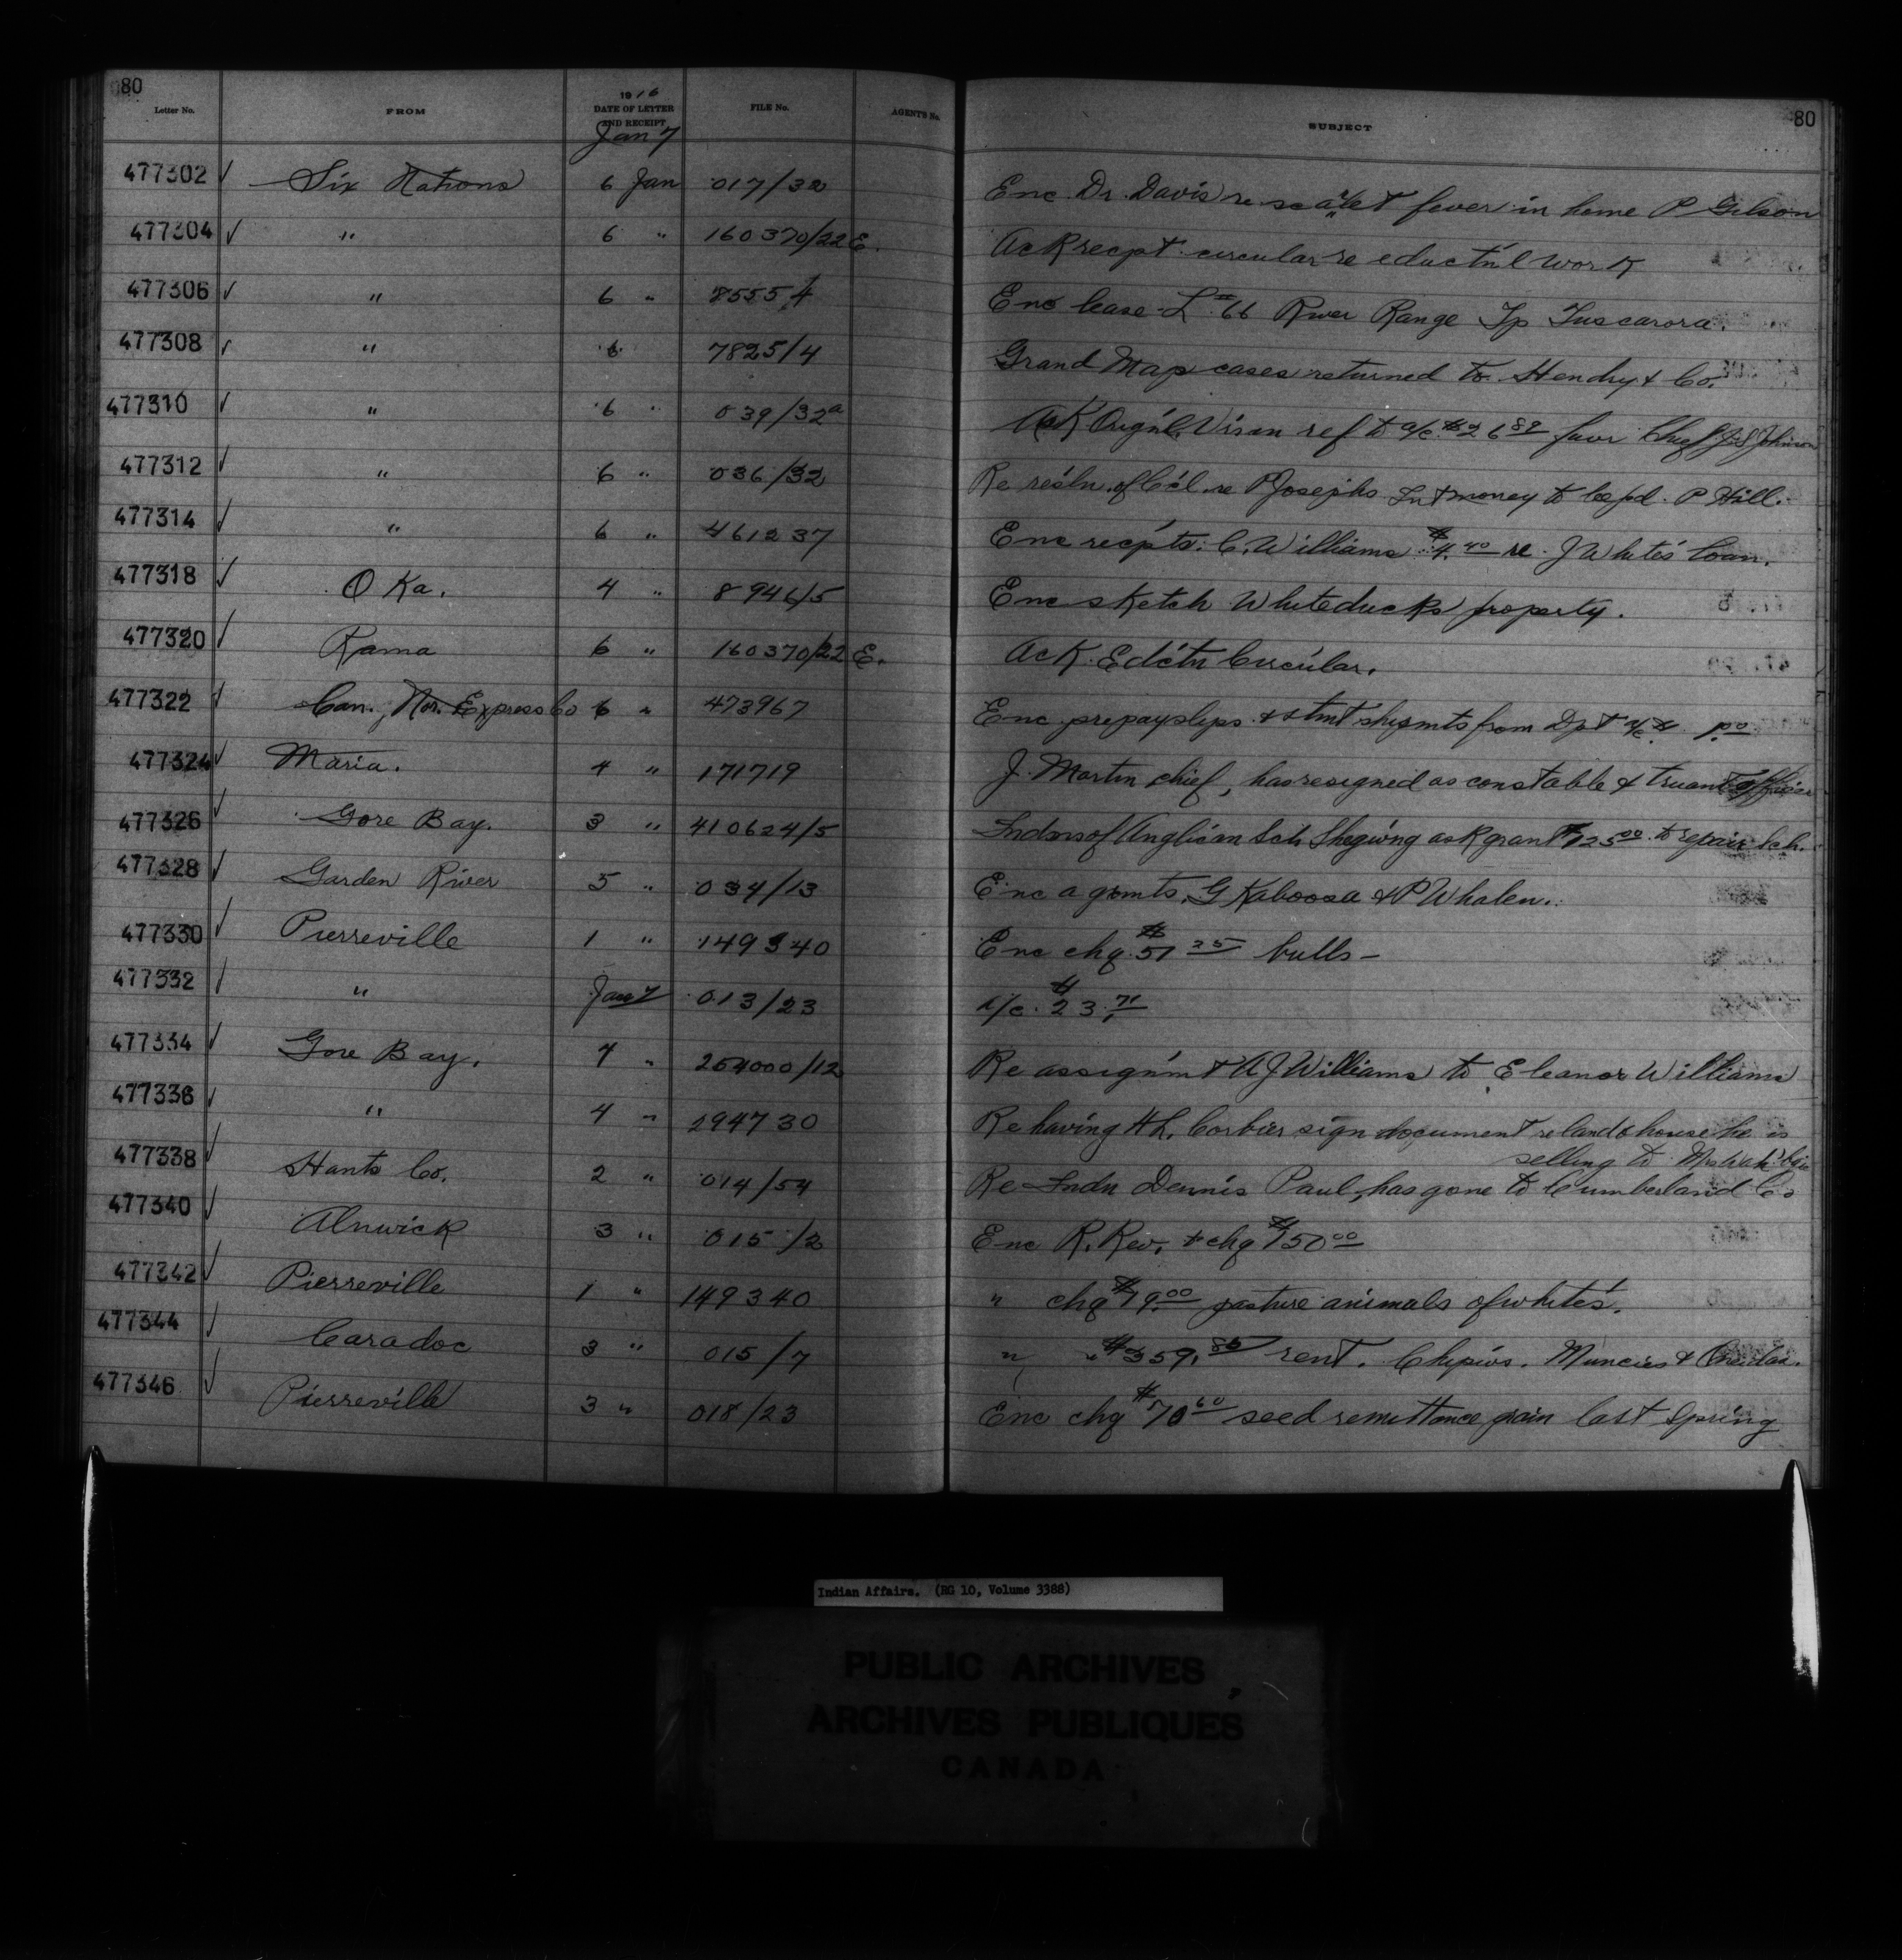 80
80
Letter No. FROM 1916 DATE OF LETTER AND RECEIPT FILE No. AGENT'S No. SUBJECT
Jan 7
477302 ✓ Six Nations 6 Jan 017/32 Enc Dr. Davis re scarlet fever in home P Gilson
477304 ✓ " 6 " 160370/22 E. Ack recpt circular re eductn'l work
477306 ✓ " 6 " 7855/4 Enc lease L # 66 River Range Tp Tuscarora.
477308 ✓ " 6 7825/4 Grand Map cases returned to Hendry & Co.
477310 ✓ " 6 " 039/32a Ack Orig'nl. ref to a/c. $26 89 favr Chief J S Johnson
477312 ✓ " 6 " 036/32 Re res'ln. of C'cl. re P Josephs Int money to be pd. P Hill.
477314 ✓ " 6 " 461237 Enc recpts. C. Williams $4. 40 re. J White's loan.
477318 ✓ Oka. 4 " 8946/5 Enc sketch Whiteducks property.
477320 ✓ Rama 6 " 160370/22 E. Ack. Ed'ctn Circular.
477322 ✓ Can. Nor. Express Co 6 " 473967 Enc prepayslips & stmt shipmts from Dpt a/c $ 1.00
477324 ✓ Maria. 4 " 171719 J. Martin chief, has resigned as constable & truant officer
477326 ✓ Gore Bay. 3 " 410624/5 Indns of Anglican Sch Shegwng ask grant $125 00 to repair Sch.
477328 ✓ Garden River 5 " 034/13 Enc agrmts. G Kaboosa & P Whalen.
477330 ✓ Pierreville 1 " 149340 Enc chq $51 25 bulls –
477332 ✓ " Jan 7 013/23 a/c. $23. 71
477334 ✓ Gore Bay. 4 " 254000/12 Re assignm't A J Williams to Eleanor Williams
477336 ✓ " 4 " 294730 Re having H L. Corbier sign document re land & house he is
selling to
477338 ✓ Hants Co. 2 " 014/54 Re Indn Dennis Paul, has gone to Cumberland Co
477340 ✓ Alnwick 3 " 015/2 Enc R. Rev. & chq $150 00
477342 ✓ Pierreville 1 " 149340 " chq $19. 00 pasture animals of whites.
477344 ✓ Caradoc 3 " 015/7 " " $359. 85 rent. Chipws. Muncies & Oneidas.
477346 ✓ Pierreville 3 " 018/23 Enc chq $70 60 seed remittance grain last Spring
Indian Affairs. (RG 10, Volume 3388)
PUBLIC ARCHIVES
ARCHIVES PUBLIQUES
CANADA